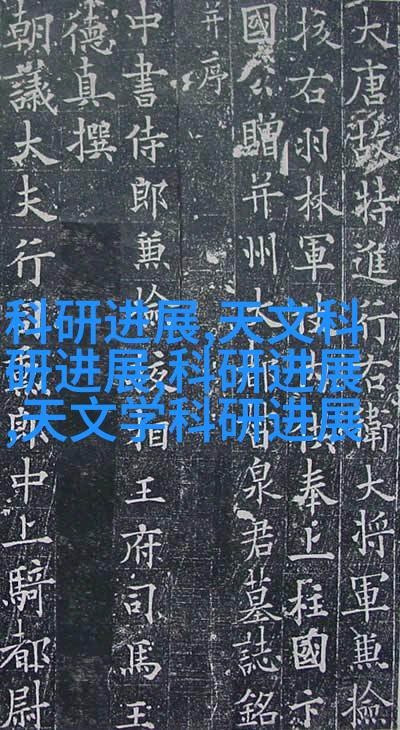 大唐故特進行右衛大將軍兼撿
挍右羽林軍奉上柱國卞
國公贈并州大都泉君墓誌銘
并序
中書侍郎兼撿挍相王府司馬王
德真撰
朝議大夫行郎中上騎都尉
科研进展,天文科
研进展,科研进展
,天文学科研进展